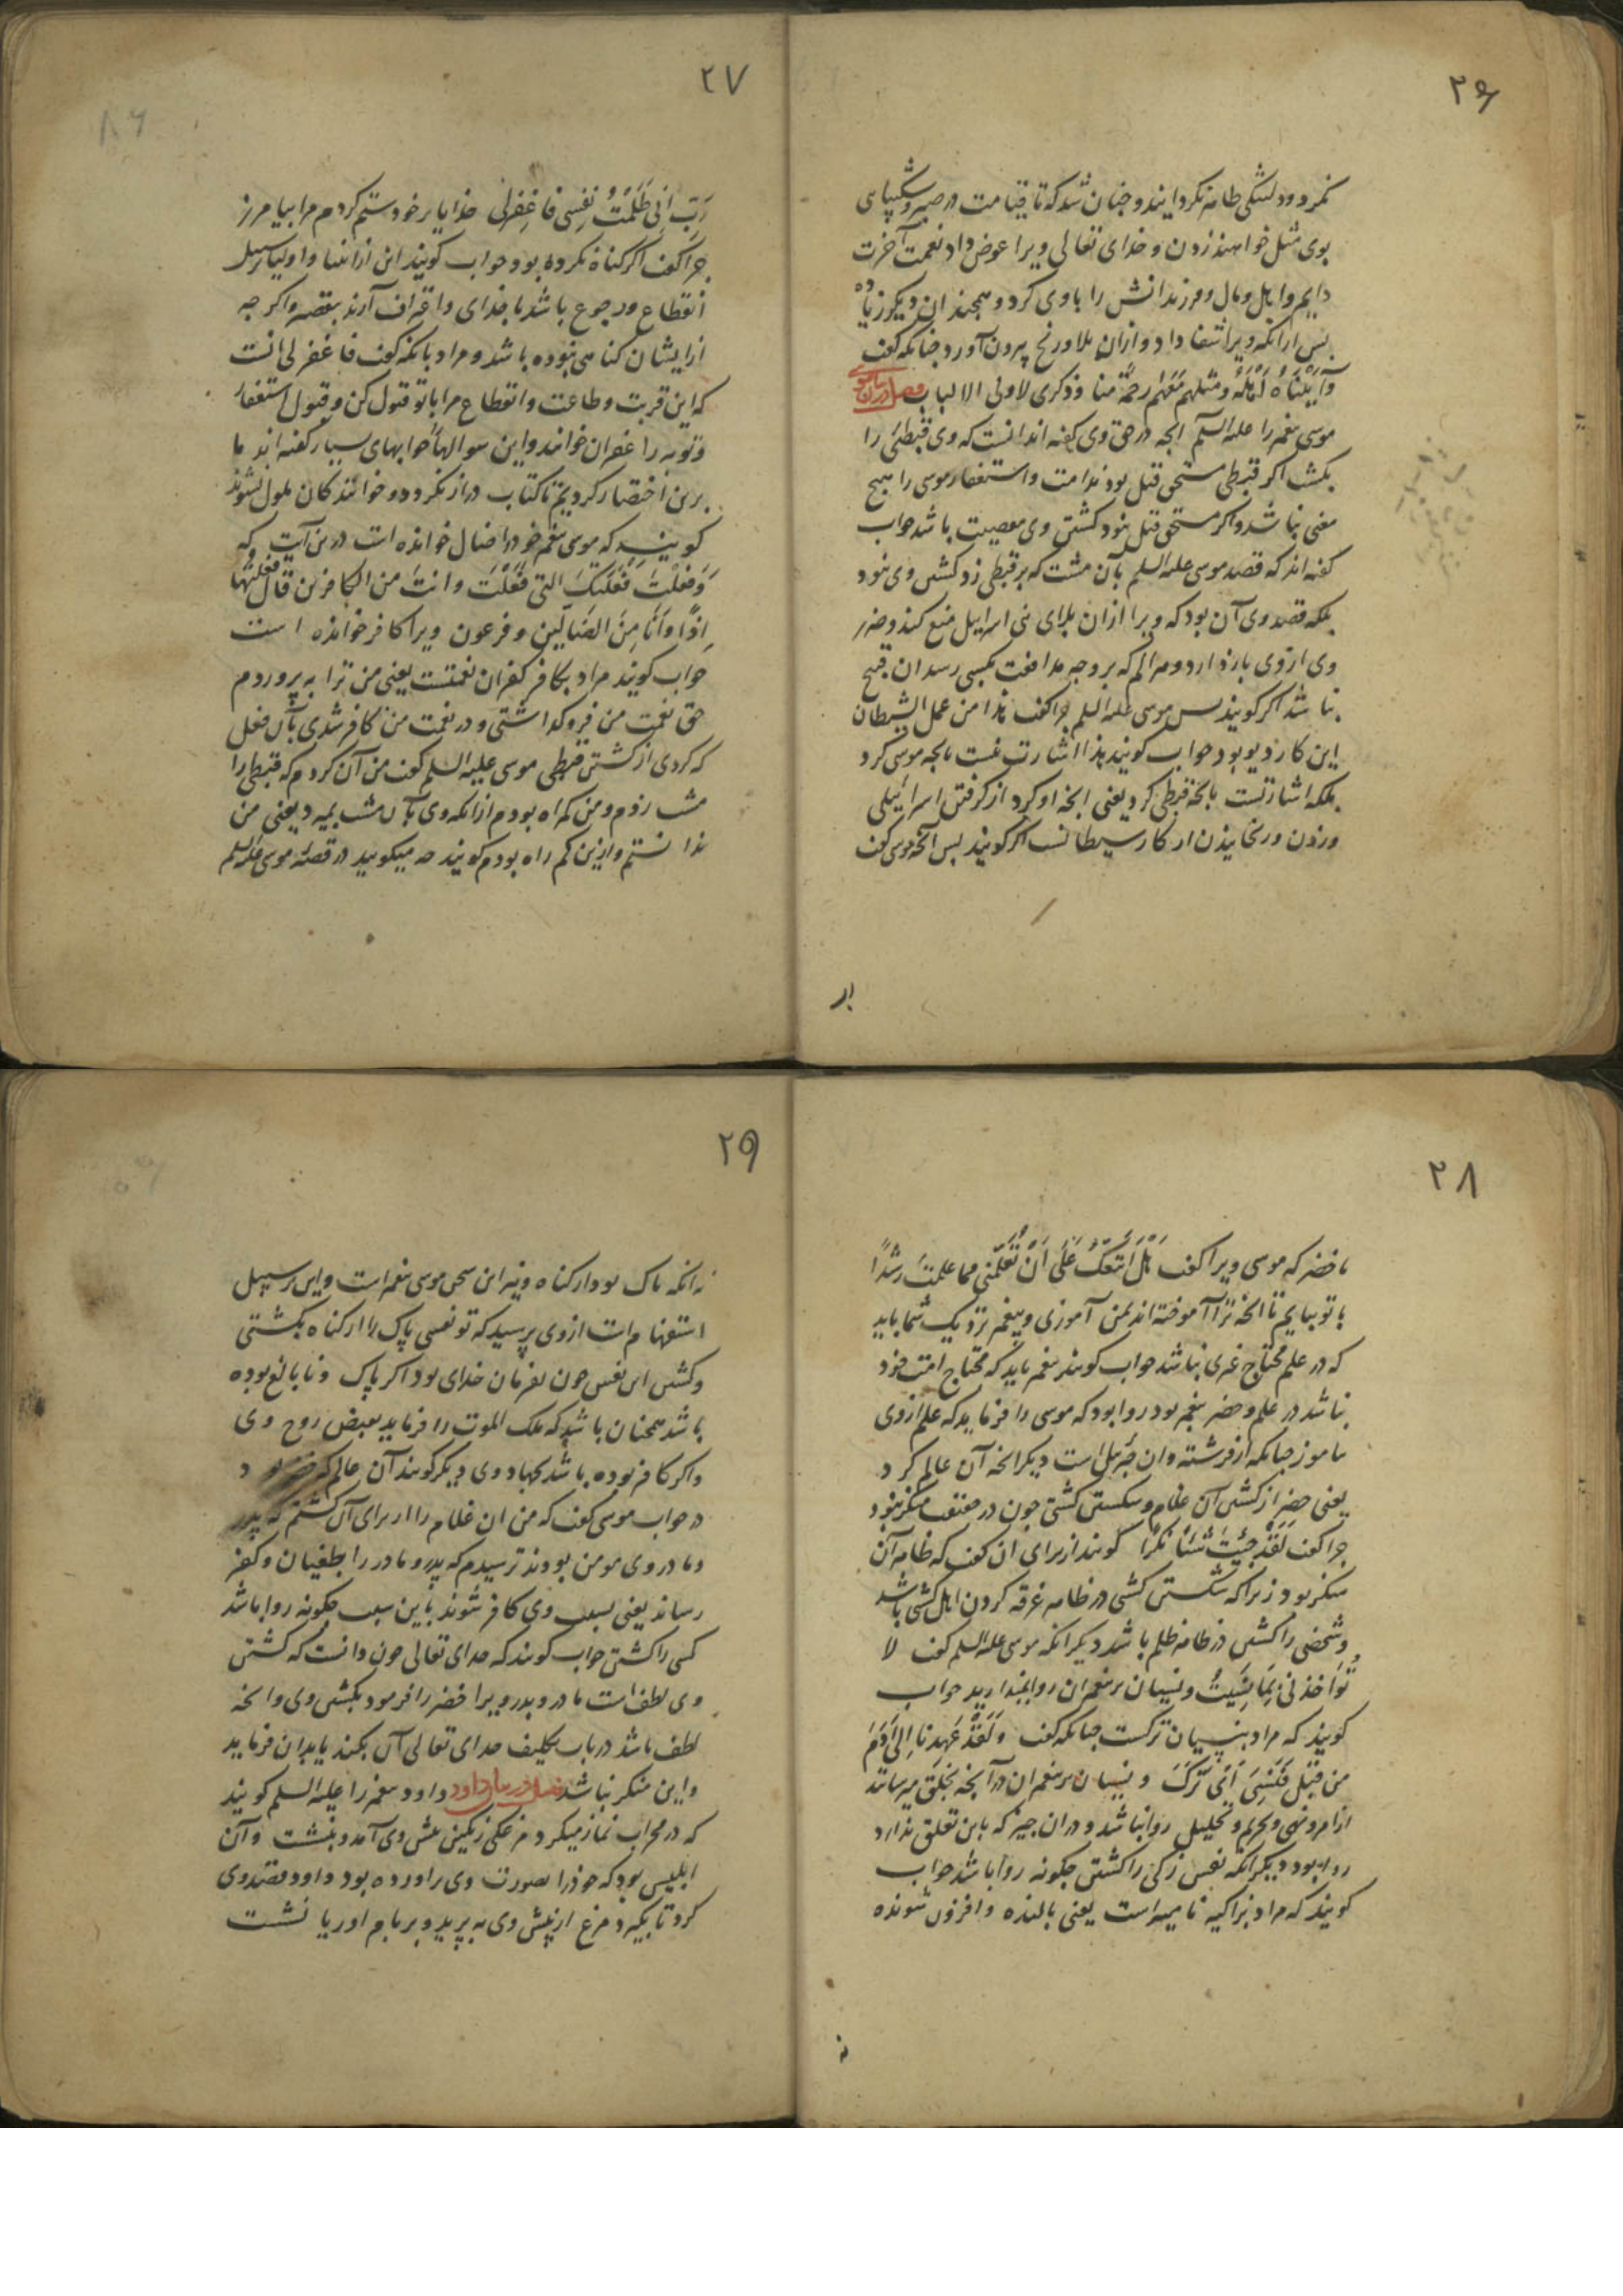 ٢٦
نمرد ودلتنگی ظاهر نکردانید وچنان شد که تا قیامت در صبر وشکیبایی
بوی مثل خواهند زدن و خدای تعالی ویرا عوض داد نعمت آخرت
دایم واهل ومال وفرزندانش را باوی کرد وهمچندان دیکر زیاده
بس ازانکه ویرا شفا داد وازان بلا ورنج بیرون آورد چنانکه کفت
وَآتَیْنَاهُ اَهْلَهُ ومثلهم مَعَهُم رحمة منا وذکری لاولی الالباب فصل در بیان موسی
موسی پیغمبر را علیه السلم انچه در حق وی کفته اند انست که وی قبطئی را
بکشت اکر قبطی مستحق قتل بود ندامت واستغفار موسی را هیچ
معنی نباشد واکر مستحق قتل نبود کشتن وی معصیت باشد جواب
کفته اند که قصد موسی علیه السلم بآن مشت که بر قبطی زد کشتن وی نبود
بلکه قصد وی آن بود که ویرا ازان بلای بنی اسراییل منع کند وضرر
وی ازوی باز دارد وهر الم که بر وجه مدافعت بکسی رسد ان قبیح
نباشد اکر کویند بس موسی علیه السلم چرا کفت هذا من عمل الشیطان
این کار دیو بود جواب کویند هذا اشارت نیست بانچه موسی کرد
بلکه اشارتست بانچه قبطی کرد یعنی انچه او کرد از کرفتن اسرائیلی
وزدن ورنجانیدن از کار شیطانست اکر کویند بس انچه موسی کفت
٢٧
رَبِّ اِنِّی ظَلَمْتُ نَفْسِی فَاغْفِرلی خدایا بر خود ستم کردم مرا بیامرز
چرا کفت اکر کناه نکرده بود جواب کویند این از انبیا واولیا بر سبیل
انقطاع ورجوع باشد با خدای واعتراف آرند بتقصیر واکر چه
ازایشان کناهی نبوده باشد ومراد بانکه کفت فاغفر لی انست
که این قربت وطاعت وانقطاع مرا باتو قبول کن وقبول استغفار
وتوبه را غفران خوانند واین سوالها را جوابهای بسیار کفته اند ما
برین اختصار کردیم تا کتاب دراز نکردد وخوانندکان ملول نشوند
کویند که موسی پیغمبر خود را ضال خوانده است درین آیت که
وَفَعَلْتَ فَعْلَتَکَ الَّتی فَعَلْتَ وانتَ من الکافرین قال فعلتها
اِذًا وَاَنَا مِنَ الضَالّین وفرعون ویرا کافر خوانده است
جواب کویند مراد بکافر کفران نعمتست یعنی من ترا به پروردم
حق نعمت من فروکذاشتی ودر نعمت من کافر شدی بآن فعل
که کردی از کشتن قبطی موسی علیه السلم کفت من آن کردم که قبطی را
مشت زدم ومن کمراه بودم ازانکه وی بآن مشت بمیرد یعنی من
ندانستم وازین کم راه بودم کویند چه میکویید در قصهٔ موسی علیه السلم
٢٨
با خضر که موسی ویرا کفت هَلْ اَتَّبِعُکَ عَلَی اَنْ تُعَلّمَنی مما علمتَ رشدًا
با تو بیایم تا انچه ترا آموخته اند بمن آموزی وپیغمبر نزدیک شما باید
که در علم محتاج غیری نباشد جواب کویند پیغمبر باید که محتاج امت خود
نباشد در علم وخضر پیغمبر بود روا بود که موسی را فرماید که علم ازوی
بیاموز چنانکه از فرشته وان جبرئیل است دیکر انچه آن عالم کرد
یعنی خضر از کشتن آن غلام وشکستن کشتی چون در حقیقت منکر نبود
چرا کفت لَقَدْ جِئْتَ شَیْئًا نُکْرًا کویند از برای ان کفت که ظاهر آن
منکر بود زیرا که شکستن کشتی در ظاهر غرقه کردن اهل کشتی باشد
وشخصی را کشتن در ظاهر ظلم باشد دیکر انکه موسی علیه السلم کفت لا
تُوَاخذنی بِمَا نَسِیتُ ونسیان بر پیغمبران روا نمیدارید جواب
کویند که مراد بنسیان ترکست چنانکه کفت وَلَقَدْ عَهِدنَا اِلی آدَمَ
من قبْل فَنَسِیَ اَی تَرَکَ ونسیان بر پیغمبران در آنچه بخلق میرسانند
از امر ونهی وتحریم وتحلیل روا نباشد ودر ان چیز که باین تعلق ندارد
روا بود دیکر انکه نفس زکی را کشتن چکونه روا باشد جواب
کویند که مراد بزاکیه نامیه است یعنی بالنده وافزون شونده
٢٩
نه انکه پاک بود از کناه ونیز این سخن موسی پیغمبر است واین بر سبیل
استفهام است ازوی پرسید که تو نفسی پاک را از کناه بکشتی
وکشتن این نفس چون بفرمان خدای بود اکر پاک ونا بالغ بوده
باشد همچنان باشد که ملک الموت را فرماید بقبض روح وی
واکر کافر بوده باشد بجهاد وی دیکر کویند آن عالم که خضر بود
در جواب موسی کفت که من ان غلام را از برای آن کشتم که پدر
ومادر وی مومن بودند ترسیدم که پدر ومادر را بطغیان وکفر
رساند یعنی بسبب وی کافر شوند باین سبب چکونه روا باشد
کسی را کشتن جواب کویند که خدای تعالی چون دانست که کشتن
وی لطف است مادر وپدر ویرا خضر را فرمود بکشتن وی وانچه
لطف باشد در باب تکلیف خدای تعالی آن بکند یا بدان فرماید
واین منکر نباشد فصل در بیان داود داود پیغمبر را علیه السلم کویند
که در محراب نماز میکرد مرغکی رنکین پیش وی آمد وبنشست وآن
ابلیس بود که خود را بصورت وی براورده بود داود قصد وی
کرد تا بکیرد مرغ از پیش وی به پرید وبر بام اوریا نشست